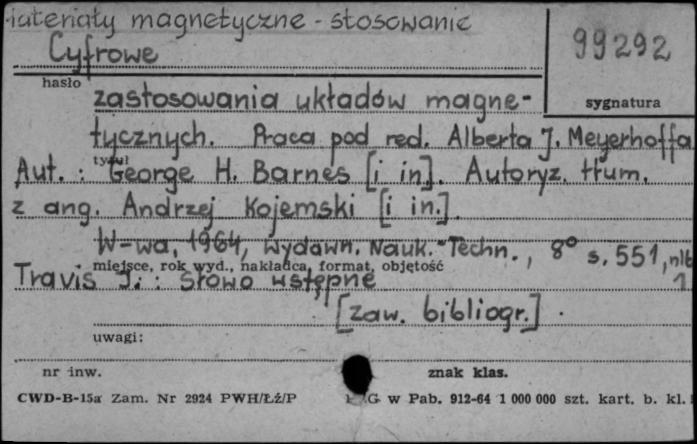 materiały magnetyczne - stosowanie
99292
Cyfrowe
hasło
zastosowania układów magne-
sygnatura
tycznych. Praca pod red. Alberta J. Meyerhoffa
tytuł
Aut. : George H. Barnes [i in]. Autoryz. tłum.
z ang. Andrzej Kojemski [i in.].
W-wa, 1964, Wydawn. Nauk.-Techn., 8° s. 551, nlb
miejsce, rok wyd., nakładca, format, objętość
Travis J. : Słowo wstępne 1
[zaw. bibliogr.] .
uwagi:
nr inw. znak klas.
CWD-B-15a Zam. Nr 2924 PWH/Łź/P G w Pab. 912-64 1 000 000 szt. kart. b. kl.